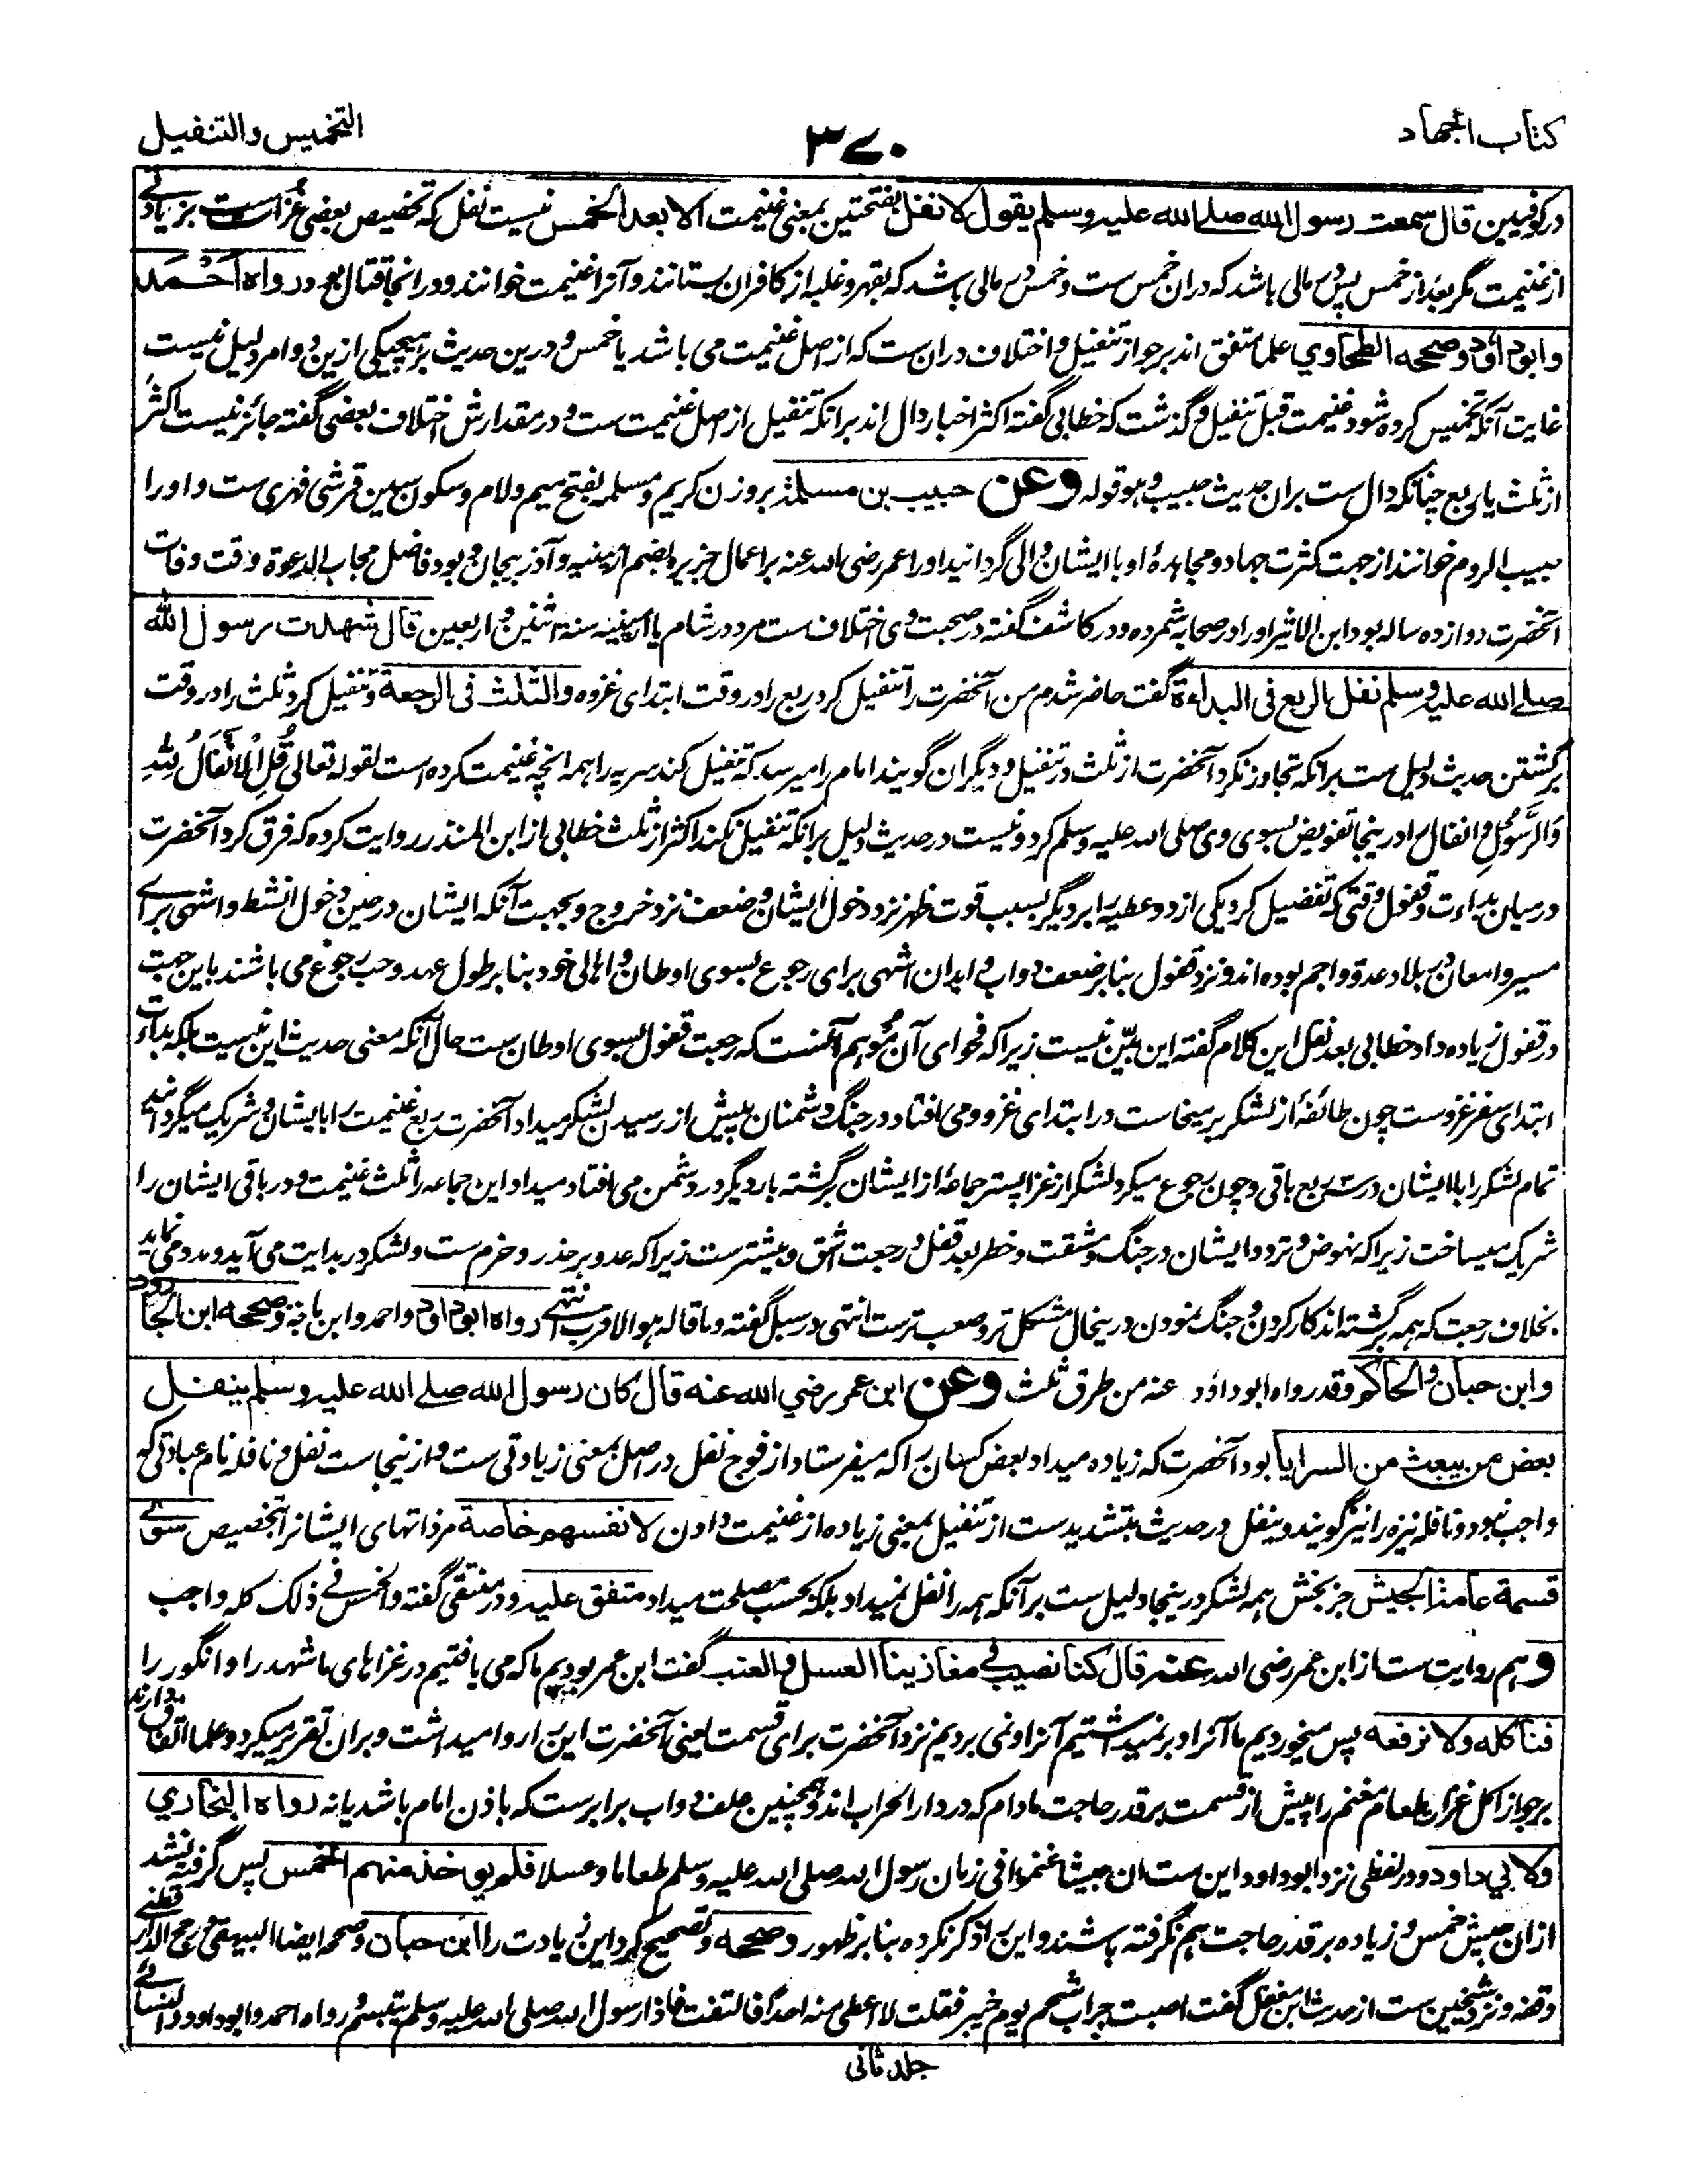 کتاب الجهاد
۳۷۰
التخمیس والتنفیل
درکوفیین قال سمعت رسول الله صلے الله علیہ وسلم یقول لا نفل بفتحتین بمعنی غنیمت الا بعد الخمس نیست نفل کہ تخصیص بعضی غزاست بزیادتے
از غنیمت مگر بعد از خمس پس مالی باشد کہ دران خمس ست و خمس مالی باشد کہ بقهر و غلبہ از کافران بستانند و آنرا غنیمت خوانند و در انجا قتال بود رواه احمد
وابوداود وصححه الطحاوي علما متفق اند بر جواز تنفیل و اختلاف دران ست کہ از اصل غنیمت می باشد یا خمس و درین حدیث بر هیچیکی ازین دو امر دلیل نیست
غایت آنکہ تخمیس کرده شود غنیمت قبل تنفیل و گذشت کہ خطابی گفتہ اکثر اخبار دال اند برانکہ تنفیل از اصل غنیمت ست و در مقدارش اختلاف بعضی گفتہ جائز نیست اکثر
از ثلث یا ربع چنانکہ دال ست بران حدیث حبیب و هو قوله وعن حبیب بن مسلمة بروزن کریم و مسلمہ بفتح میم و لام و سکون سین قرشی فهری ست و اورا
حبیب الروم خوانند از جهت کثرت جهاد و مجاهدۂ او با ایشان والی گردانید اورا عمر رضی الله عنہ بر اعمال جزیره بضم ارمینیہ و آذربیجان و بود فاضل مجاب الدعوة وقت وفات
آنحضرت دوازده سالہ بود ابن الاثیر اورا در صحابہ شمرده و در کاشف گفتہ در صحبت وی اختلاف ست مرد در شام یا ارمینیہ سنہ اثنین و اربعین قال شهدت رسول الله
صلے الله علیہ وسلم نفل الربع فی البداءة گفت حاضر شدم من آنحضرت را تنفیل کرد ربع را در وقت ابتدای غزوه والثلث فی الرجعة و تنفیل کرد ثلث را در وقت
برگشتن حدیث دلیل ست برانکہ تجاوز نکرد آنحضرت از ثلث در تنفیل و دیگران گویند امام را میرسد کہ تنفیل کند سریہ را همہ انچہ غنیمت کرده است لقوله تعالی قُلِ الْاَنْفَالُ لِلّٰهِ
وَالرَّسُولِ و انفال را درینجا تفویض بسوی وی صلی الله علیہ وسلم کرد و نیست در حدیث دلیل برانکہ تنفیل نکند اکثر از ثلث خطابی از ابن المنذر روایت کرده کہ فرق کرد آنحضرت
درمیان بداءت و قفول وقتی کہ تفضیل کرد یکی از دو عطیہ را بر دیگر بسبب قوت ظهر نزد دخول ایشان و ضعف نزد خروج و بجهت آنکہ ایشان در حین دخول انشط و اشهی براے
مسیر و امعان در بلاد عدو و اجم بوده اند و نزد قفول بنابر ضعف دواب و ابدان اشهی برای رجوع بسوی اوطان و اهالی خود بنابر طول عهد و حب رجوع می باشند باین جهت
در قفول زیاده داد خطابی بعد نقل این کلام گفتہ این بیّن نیست زیرا کہ فحوای آن موهم آنست کہ رجعت قفول بسوی اوطان ست حال آنکہ معنی حدیث این نیست بلکہ بداءت
ابتدای سفر غزوست چون طائفۂ از لشکر برمیخاست در ابتدای غزو و می افتاد در جنگ دشمنان پیش از رسیدن لشکر میداد آنحضرت ربع غنیمت را بایشان و شریک میگردانید
تمام لشکر را با ایشان در سہ ربع باقی و چون رجوع میکرد لشکر از غزا پستر جماعۂ از ایشان برگشتہ بار دیگر در دشمن می افتاد میداد این جماعہ را ثلث غنیمت و در باقی ایشان را
شریک میساخت زیرا کہ نهوض و تردد ایشان در جنگ و مشقت و خطر بعد قفل و رجعت اشق و بیشترست زیرا کہ عدو بر حذر و حزم ست و لشکر در بدایت می آید و مدد می نماید
بخلاف رجعت کہ همہ برگشتہ اند کار کردن و جنگ نمودن درینحال مشکل تر و صعب ترست انتهی در سبل گفتہ و ما قالہ هو الاقرب انتهے رواه ابوداود و احمد و ابن ماجة وصححه ابن الجارود
وابن حبان والحاکم وقد رواه ابوداؤد عنه من طرق ثلث وعن ابن عمر رضي الله عنه قال کان رسول الله صلے الله علیہ وسلم ینفل
بعض من یبعث من السرایا بود آنحضرت کہ زیاده میداد بعض کسان را کہ میفرستاد از فوج نفل در اصل بمعنی زیادتی ست و ازینجاست نفل و نافلہ نام عبادتی کہ
واجب نبود و نافلہ نیزه را نیز گویند و ینفل در حدیث بتشدید ست از تنفیل بمعنی زیاده از غنیمت دادن لانفسهم خاصة مر ذاتهای ایشانرا بتخصیص سوے
قسمة عامة الجیش جز بخش همہ لشکر درینجا دلیل ست برآنکہ همہ را نفل نمیداد بلکہ بحسب مصلحت میداد متفق علیہ و در منتقی گفتہ والخمس فے ذلک کلہ واجب
وهم روایت ست از ابن عمر رضی الله عنہ قال کنا نصیب فے مغازینا العسل والعنب گفت ابن عمر بودیم ما کہ می یافتیم در غزاهای ما شهد را و انگور را
فناکله ولا نرفعه پس میخوردیم ما آنرا و برنمیداشتیم آنرا و نمی بردیم نزد آنحضرت برای قسمت یعنی آنحضرت این را روا میداشت و بران تقریر میکرد و علما اتفاق دارند
بر جواز اکل غزاة طعام مغنم را پیش از قسمت بر قدر حاجت مادام کہ در دار الحرب اند و همچنین علف دواب برابرست کہ باذن امام باشد یا نہ رواه البخاري
ولابي داود و در لفظی نزد ابوداود این ست ان جیشا غنموا فی زمان رسول الله صلی الله علیہ وسلم طعاما وعسلا فلم یوخذ منهم الخمس پس گرفتہ نشد
ازان جیش خمس و زیاده بر قدر حاجت هم نگرفتہ باشند و این را ذکر نکرده بنابر ظهور وصححه و تصحیح کرد این زیادت را ابن حبان وصححه ایضا البیهقی و رجح الدارقطنے
وقفه و نزد شیخین ست از حدیث ابن مغفل گفت اصبت جراب شحم یوم خیبر فقلت لا اعطی منه احدا فالتفت فاذا رسول الله صلی الله علیہ وسلم یتبسم رواه احمد وابوداود والنسائے
جلد ثانی